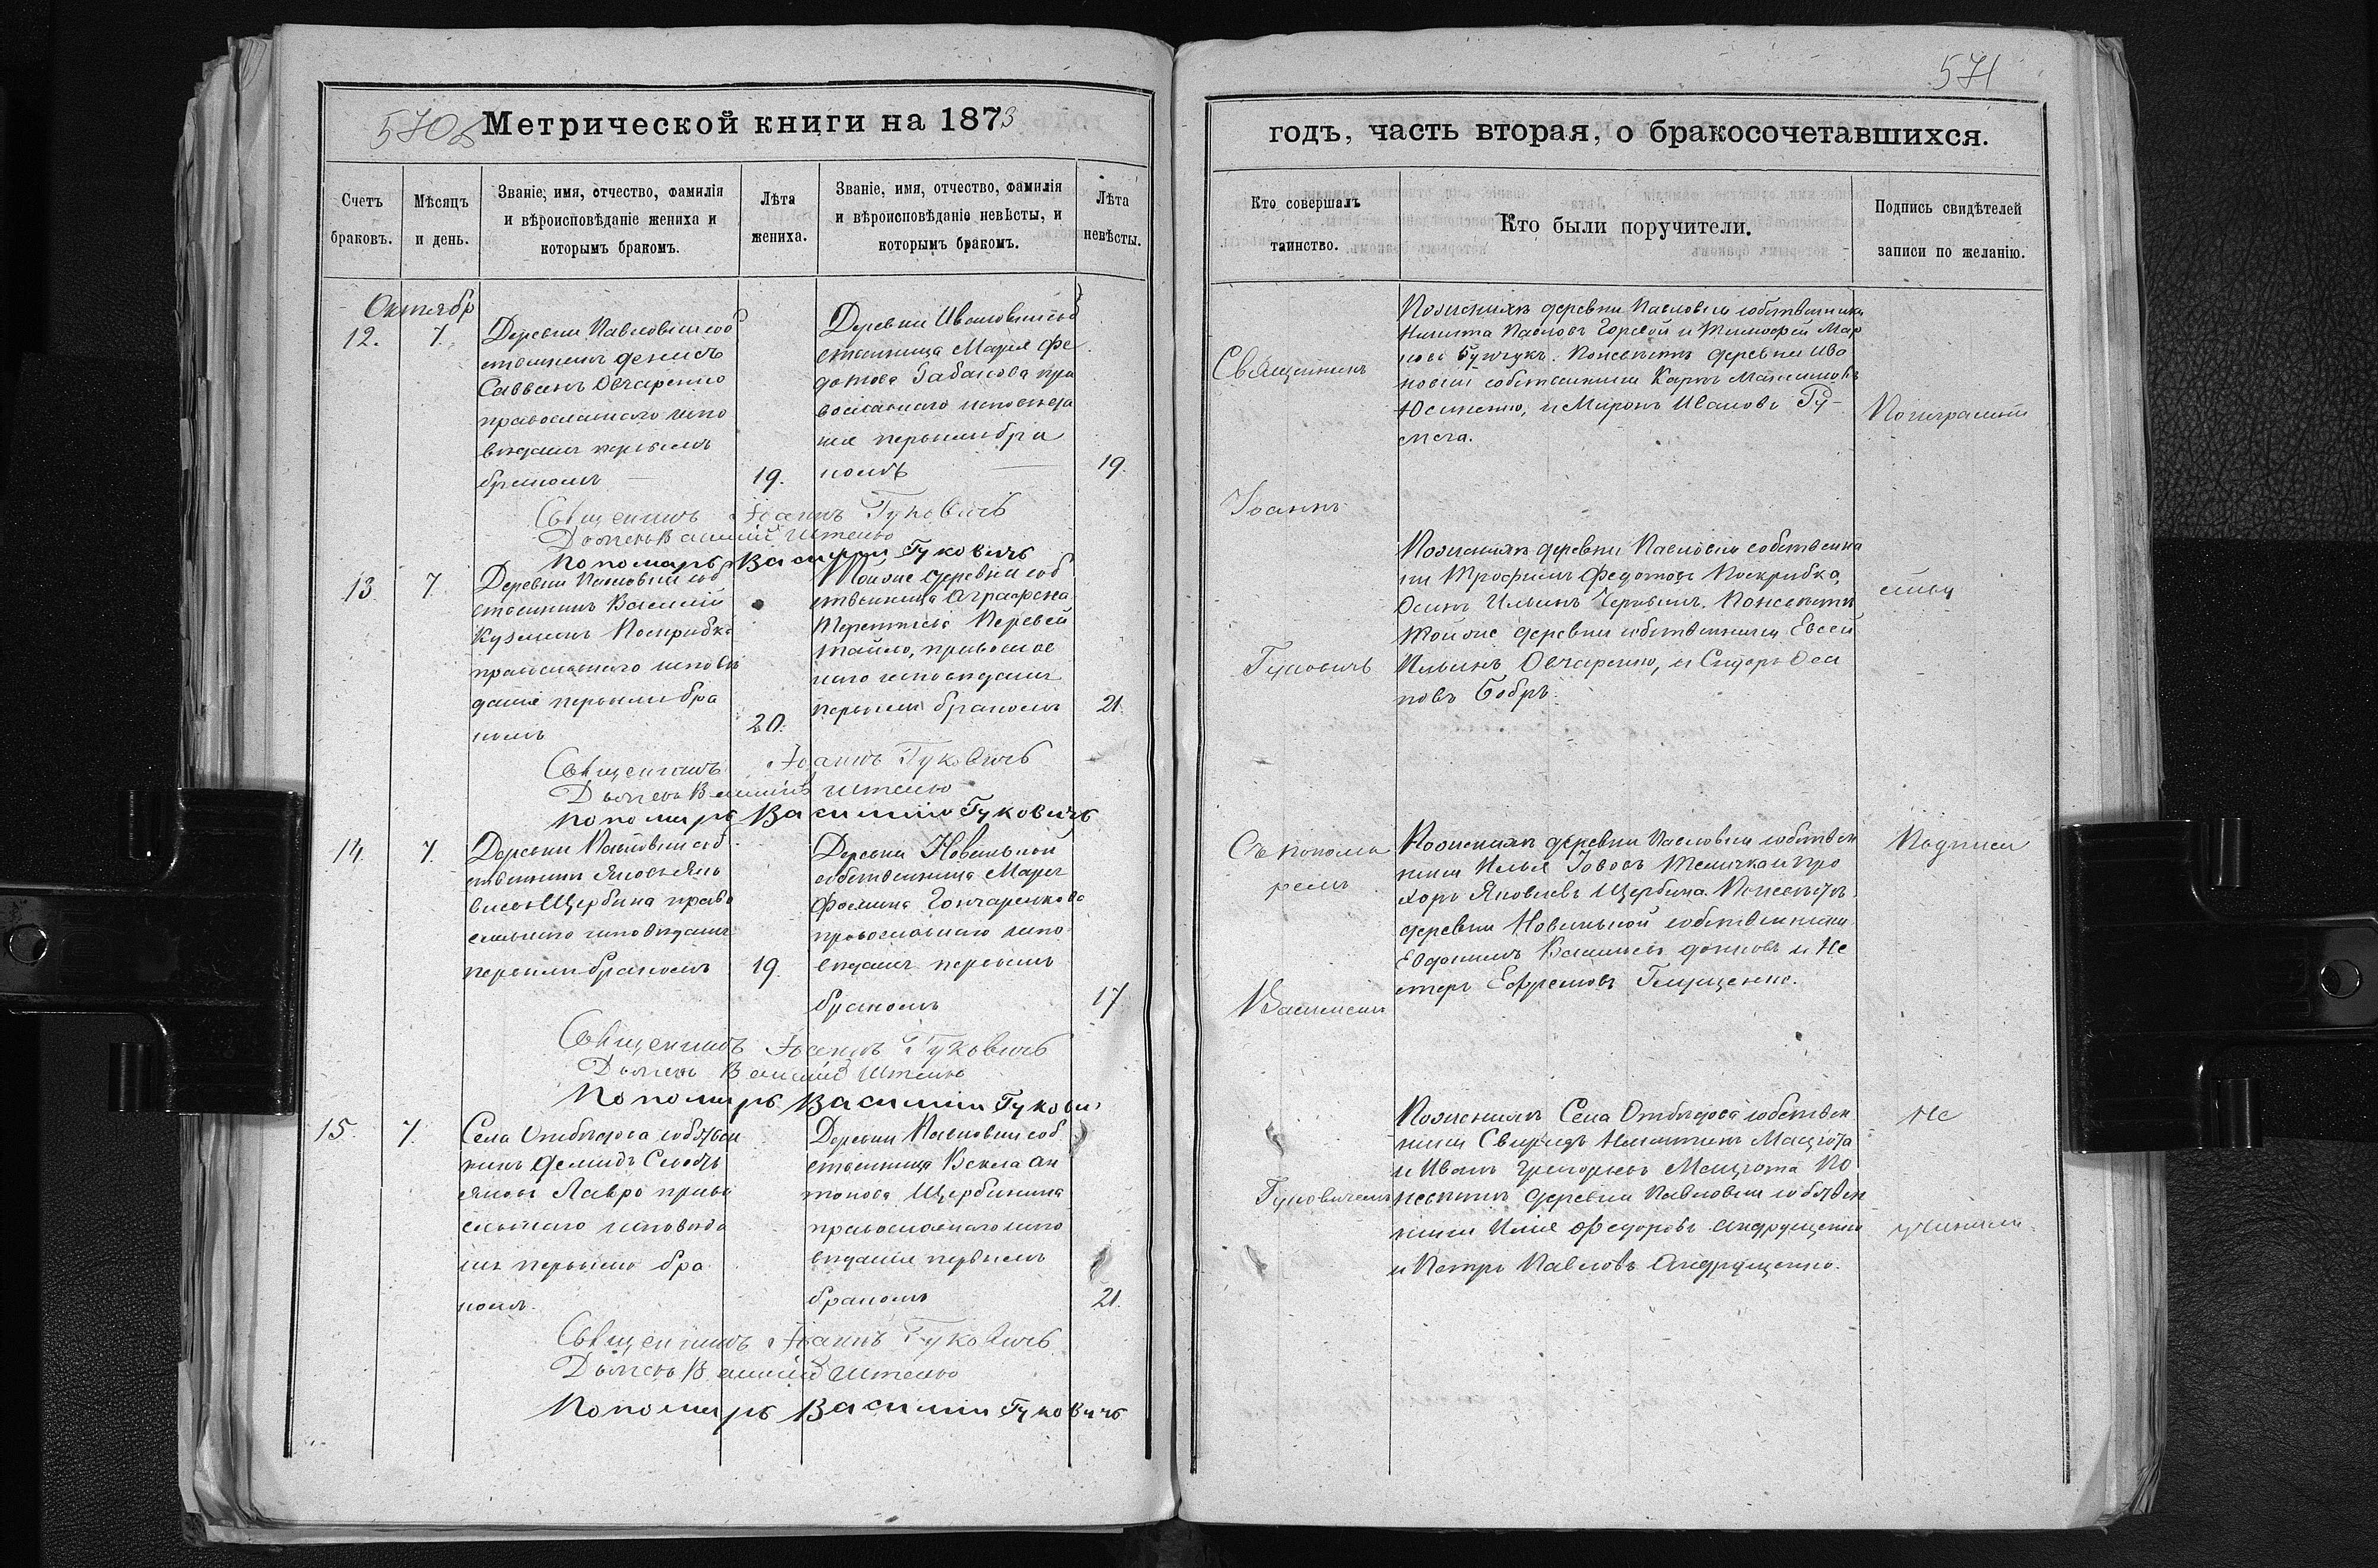 570об
Метрической книги на 1873
Счетъ браковъ.
Мѣсяцъ и день.
Званіе, имя, отчество, фамилія
и вѣроисповѣданіе жениха и
которымъ бракомъ.
Лѣта жениха.
Званіе, имя, отчество, фамилія
и вѣроисповѣданіе невѣсты, и
которымъ бракомъ.
Лѣта невѣсты.
Октябр
12.
7.
Деревни Павловки соб
ственникъ Денисъ
Саввинъ Овчаренко
православнаго испо
вѣданія первымъ
бракомъ
19.
Деревни Ивановки соб
ственница Марія Фе
дотова Габанова пра
вославнаго исповѣда
нія первымъ бра
комъ
19.
Священникъ Іоаннъ Гуковичъ
Дьячекъ Василій
Пономарь Василій Гуковичъ
13
7.
Деревни Павловки соб
ственникъ Василій
Кузьминъ Поскрибка
православнаго исповѣ
данія первымъ бра
комъ
20.
Той же деревни соб
ственница Аграфена
Терентіева Перевей
тайло, православ
наго исповѣданія
первымъ бракомъ
21.
Священникъ Іоаннъ Гуковичъ
Дьячекъ Василій
Пономарь Василій Гуковичъ
14.
7.
Деревни Павловки соб
ственникъ Яковъ Яко
влевъ Щербина право
славнаго исповѣданія
первымъ бракомъ
19.
Деревни Новенькой
собственница Марія
Фомина Гончаренкова
православнаго испо
вѣданія первымъ
бракомъ
17
Священникъ Іоаннъ Гуковичъ
Дьячекъ Василій
Пономарь Василій Гукович
15.
7.
Села Отбѣдова собствен
никъ Демидъ
Лавро право
славнаго исповѣда
нія первымъ бра
комъ.
Деревни Павловки соб
ственница Векла Ан
тонова Щербинина
православнаго испо
вѣданія первымъ
бракомъ
21.
Священникъ Іоаннъ Гуковичъ
Дьячекъ Василій
Пономарь Василій Гуковичъ
571
годъ, часть вторая, о бракосочетавшихся.
Кто совершалъ таинство.
Кто были поручители.
Подпись свидѣтелей
записи по желанію.
Священникъ
Іоаннъ
Гуковичъ
Съ понома
ремъ
Василіемъ
Гуковичемъ
По женихѣ деревни Павловки собственники
Никита Павловъ Горевой и Тимофей Мар
ковъ Бунчукъ. По невѣстѣ деревни Ива
новки собственники Карпъ Максимовъ
Юсипенко, и Миронъ Ивановъ Гу-
мега.
По женихѣ деревни Павловки собственни
ки Трофимъ Федотовъ Поскрибка,
Осипъ Ильинъ По невѣстѣ
той же деревни собственники Евсей
Ильинъ Овчаренко, и Сидоръ Оси
повъ Бобръ.
По женихѣ деревни Павловки собствен
ники Илья Іововъ Теличка и Про
хоръ Яковлевъ Щербина. По невѣстѣ
деревни Новенькой собственники
Евдокимъ Васильевъ и Не
стеръ Ефремовъ Глущенко.
По женихѣ Села Отбѣдова собствен
ники Свиридъ Никитинъ Мацюта
и Иванъ Григорьевъ Мацюта По
невѣстѣ деревни Павловки собствен
ники Илія Федоровъ Андрущенко
и Петръ Павловъ Андрущенко.
По неграмот
ству
Подписи
не
учинили.